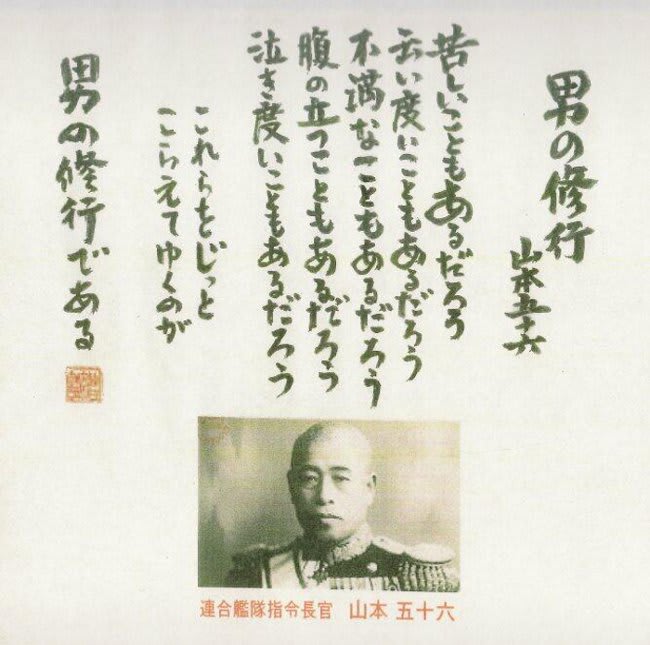 男の修行
山本五十六
苦しいこともあるだろう
云い度いこともあるだろう
不満なこともあるだろう
腹の立つこともあるだろう
泣き度いこともあるだろう
これらをじっと
こらえてゆくのが
男の修行である
連合艦隊指令長官 山本 五十六